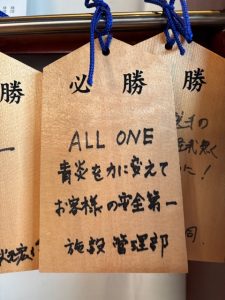 必勝
ALL ONE
青炎を力に変えて
お客様の安全第一
施設管理部
勝
勝